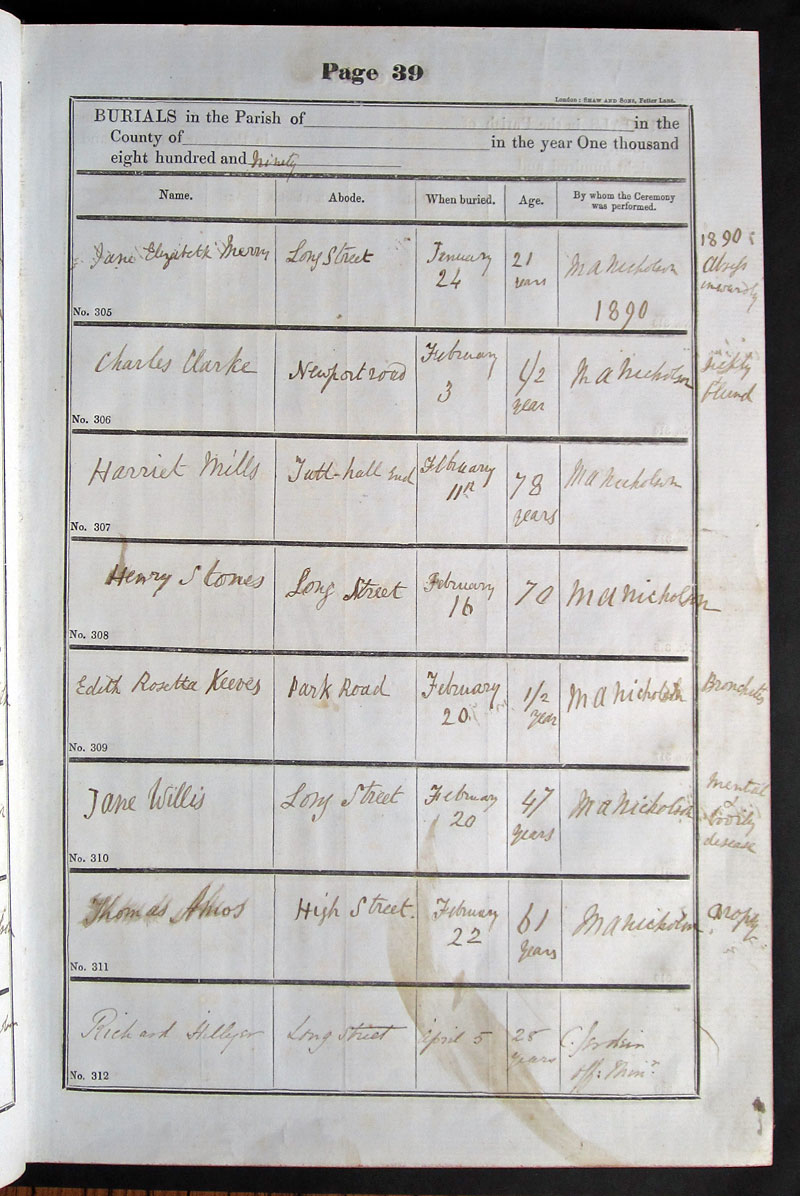 Page 39
London: SHAW AND SONS, Fetter Lane.
BURIALS in the Parish of in the
County of in the year One thousand
eight hundred and Ninety
Name. Abode. When buried. Age. By whom the Ceremony was performed.
Jane Elizabeth Merry Long Street January 24 21 years M A Nicholson 1890
1890
inwardly
No. 305
Charles Clarke Newport road February 3 1/2 year M A Nicholson
No. 306
Harriet Mills hall End February 11th 78 years M A Nicholson
No. 307
Henry Stones Long Street February 16 70 M A Nicholson
No. 308
Edith Rosetta Keeves Park Road February 20 1/2 year M A Nicholson
Bronchitis
No. 309
Jane Willis Long Street February 20 47 years M A Nicholson
mental
&
bodily
disease
No. 310
Thomas Amos High Street. February 22 61 years M A Nicholson
Dropsy
No. 311
Richard Hillyer Long Street April 5 28 years C. off: Minr.
No. 312